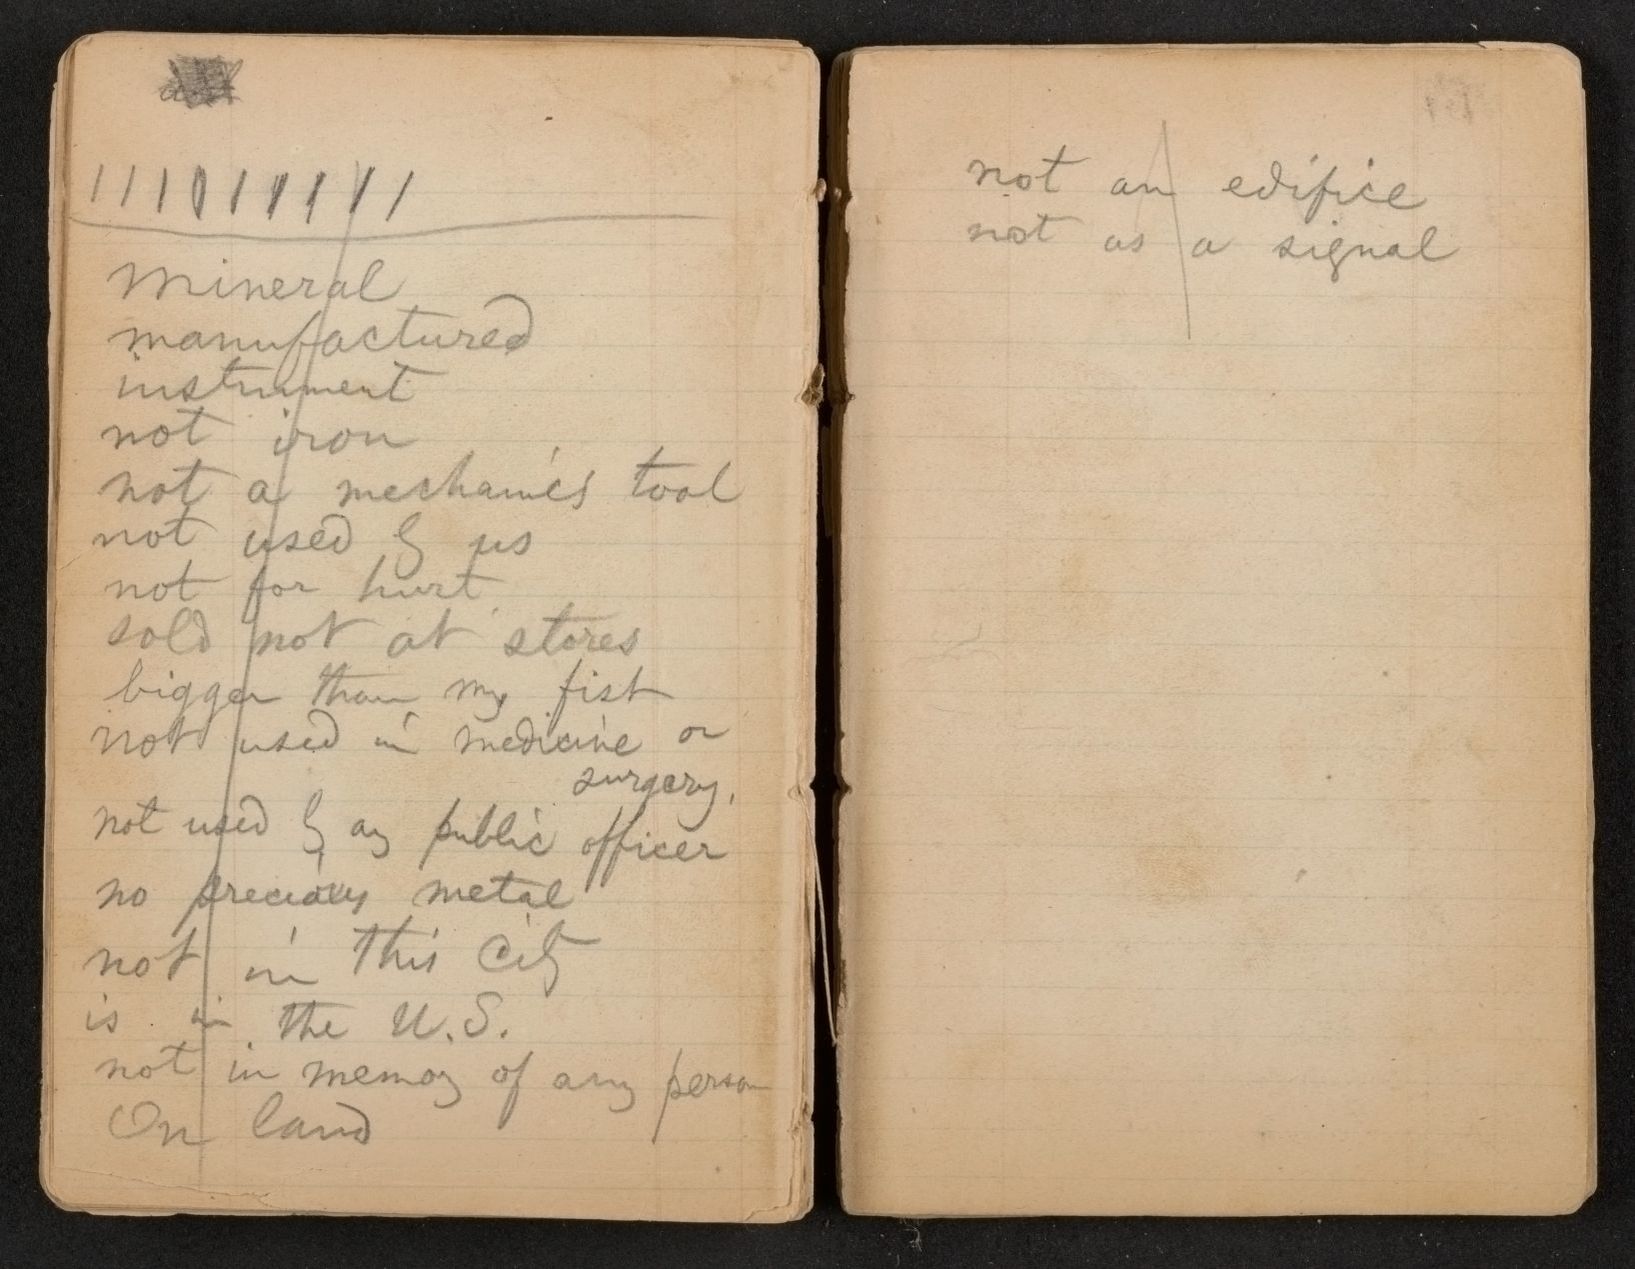 Mineral
manufactured
instrument
not iron
not a mechanic's tool
not used by us
not for hurt
sold not at stores
bigger than my fist
not used in medicine or
surgery,
not used by any public officer
no precious metal
not in this City
is in the U.S.
not in memory of any person
On land
not an edifice
not as a signal